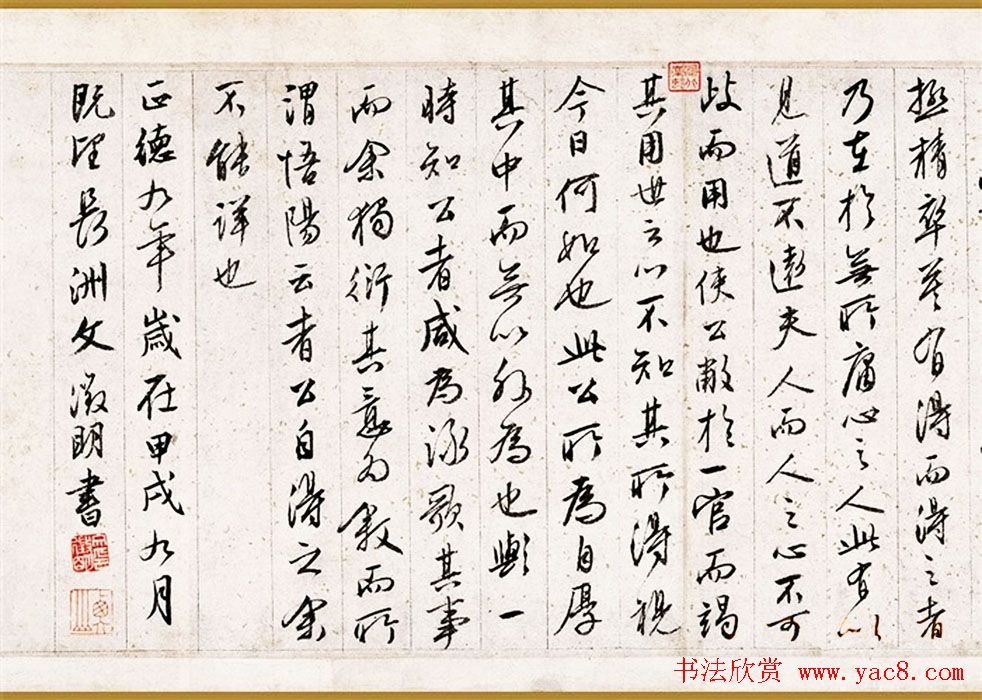 極精卒莫有得而得之者
乃在於無所庸心之人此有以
見道不遠夫人而人之心不可
歧而用也使公敝於一官而竭
其用世之心不知其所得視
今日何如也此公所為自厚
其中而無以外為也與一
時知公者咸為詠歌其事
而余獨衍其意為敘而所
謂悟陽云者公自得之余
不能詳也
正德九年歲在甲戌九月
既望長洲文徵明書
书法欣赏 www.yac8.com